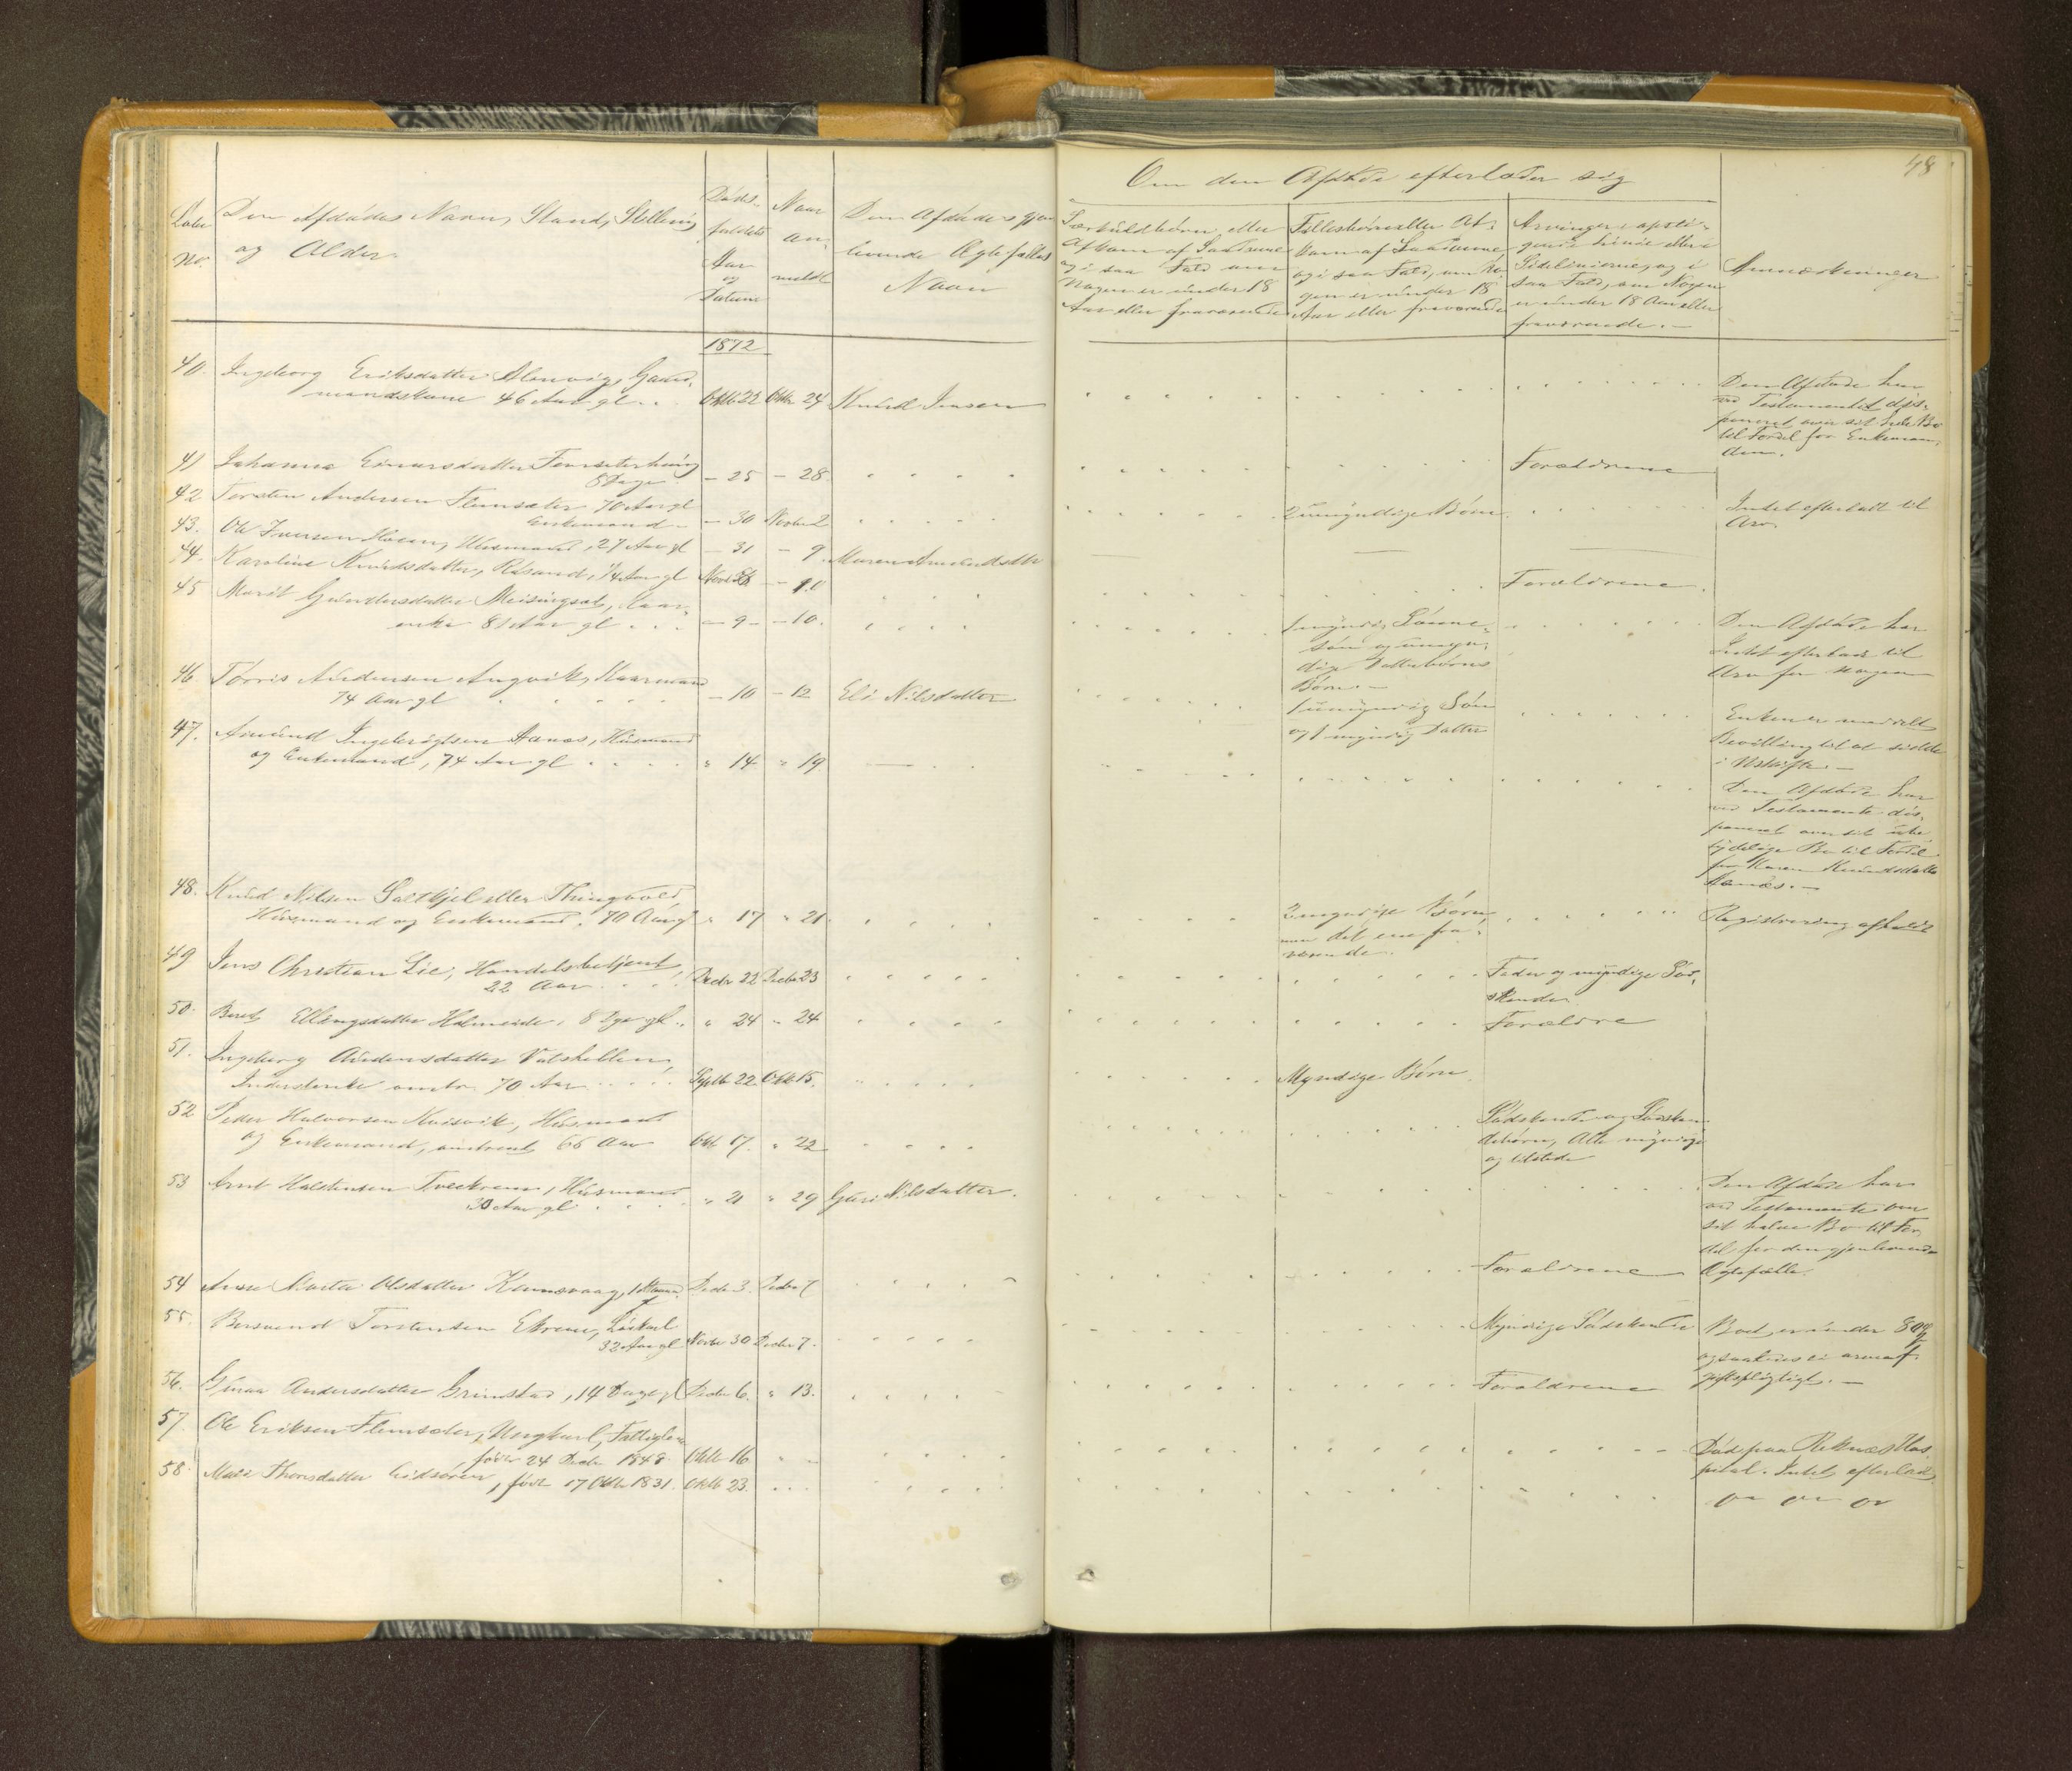 Løbe
No.
Den Afdødes Navn, Stand, Stilling
og Alder.
Døds-
faldets
Aar
og
Datum
Naar
an-
meldt
Den Afdødes gjen
levende Ægtefælles
Navn
Om den Afdøde efterlader sig
48
Særkuldsbørn eller
Afkom af Saadanne
og i saa Fald om
Nogen er under 18
Aar eller fraværende
Fællesbørn eller Af-
kom af Saadanne,
og i saa Fald, om No-
gen er under 18
Aar eller fraværende
Arvinger i opsti-
gende Linie eller i
Sidelinierne, og i
saa Fald, om Nogen
er under 18 Aar eller
fraværende.-
Anmærkninger
1872
40. Ingeborg Eriksdatter Alanvig, Gaard-
mandskone 46 Aar gl. Oktb 22 Oktbr 24 Knud Jensen
Den Afdøde har
ved Testamentet dis-
poneret over sit hele Bo
til Fordel for Enkeman-
den.
41 Johanna Einarsdatter
8 Dage - 25 - 28. Forældrene
42 Torsten Andersen Flemsæter 70 Aar gl
Enkemand - - 30 Novbr 2 2 umyndige Børn
Intet efterladt til
Arv.
43. Ole Iversen Husmand, 27 Aar gl - 31 - 9. Maren
44. Karoline Knudsdatter, Røsand, 1/4 Aar gl - 10 Forældrene.
45 Marit Gundersdatter Meisingset,
enke 81 Aar gl - 9 - - 10.
1 myndig Sønne-
søn og umyn-
dige Datterbørns
Børn.-
Den Afdøde har
Intet efterladt til
Arv for Nogen
46 Tørris Andersen Angvik, Kaarmand
74 Aar gl - 10 - 12 Eli Nilsdatter
1 umyndig Søn
og 1 myndig Datter
Enken er meddelt
Bevilling til at sidde
i Uskifte.-
47. Amund Ingebrigtsen Aanæs, Husmand
og Enkemand, 74 Aar gl " 14 " 19
Den Afdøde har
ved Testamente dis-
poneret over sit ube-
tydelige Bo til Fordel
for Maren Knudsdatter
Aanæs.-
48. Knud Nilsen Saltkjel eller Thingvold,
Husmand og Enkemand. 70 Aar gl " 17 " 21.
2 myndige Børn,
men det ene fra-
værende.
Registrering afholdt
49 Jens Christian Lie, Handelsbetjent,
22 Aar Decbr 22 Decbr 23
Fader og myndige Sød-
skende.
50. Berit Ellingsdatter Holmeide, 8 Dge gl. " 24 " 24 Forældre
51. Ingeborg Andersdatter Valskellen,
Inderstenke omtr. 70 Aar Septb 22 Oktb 15. Myndige Børn
52 Peder Halvorsen Kvisvik, Husmand
og Enkemand, omtrent 66 Aar Oktb 17. " 22
Sødskende og Sødsken-
debørn, Alle myndige
og tilstede
53 Arnt Halstensen Tveekrem, Husmand
30 Aar gl " 21 " 29 Guri Nilsdatter.
Den Afdøde har
ved Testamente over
sit halve Bo til For-
del for den gjenlevende
Ægtefælle.
54 Anne Marta Olsdatter Kamsvaag, 1 Maaned Decbr 3. Decbr 7 Forældrene
55. Bersvend Torstensen Ekrem, Løskarl
32 Aar gl Novbr 30 Decbr 7. Myndige Sødskende
Boet er under 80
og saaledes ei arveaf-
giftspligtigt.-
56. Guraa Andersdatter Grimstad, 14 Dage gl Decbr 6. " 13. Forældrene
57. Ole Eriksen Flemsæter, Ungkarl, Fattiglem
født 24 Decbr 1848. Oktb 16
Død paa Reknæs Hos-
pital. Intet efterladt.
58. Mari Thoresdatter Eidsøren, født 17 Oktbr 1831. Oktb 23.